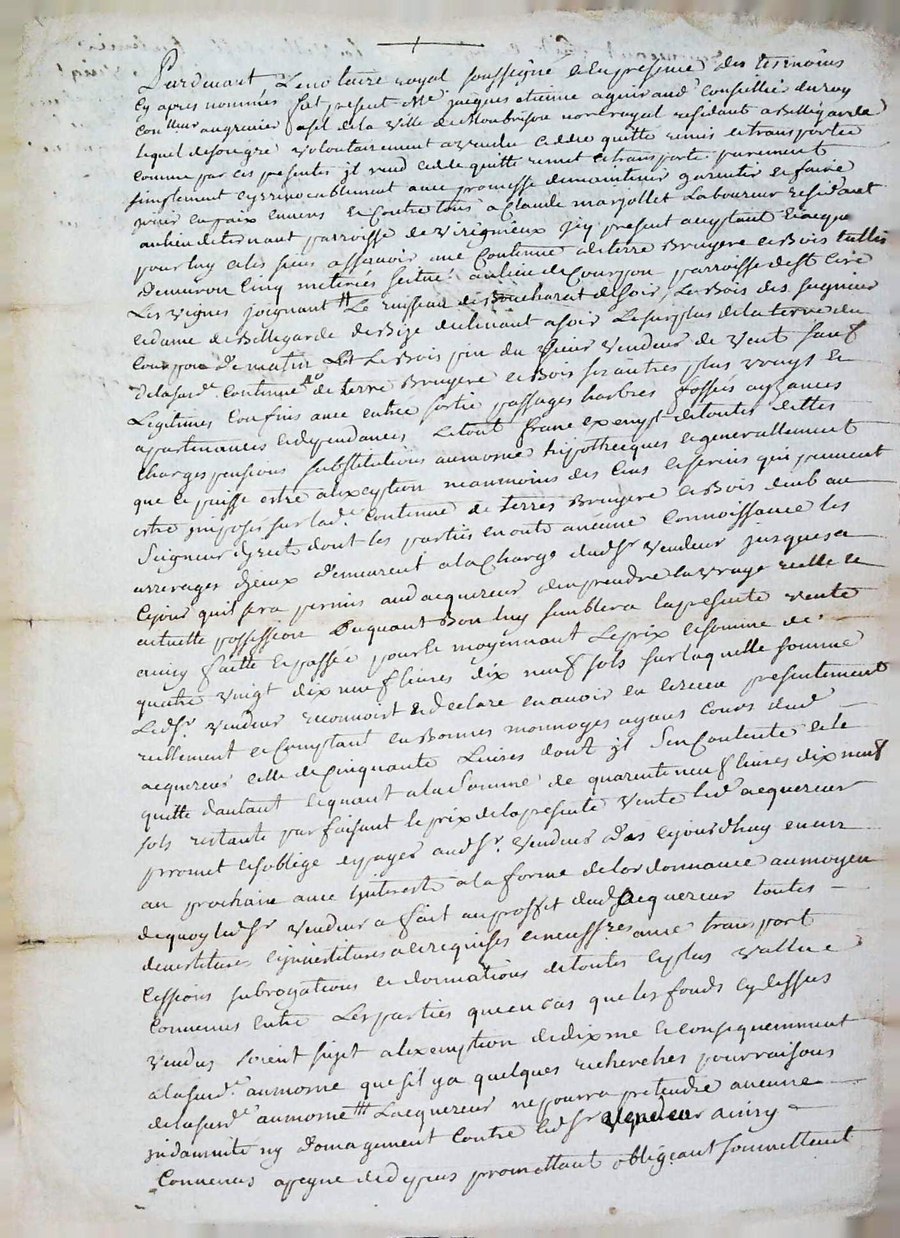 Pardevant Le notaire royal soussigné et en presence des tesmoins
Cy apres nommés fut present Me jacques etienne aguiraud conseillier du roy
Con lleur au grenier a sel de la ville de Montbrison not royal residant a Bellegarde
lequel de son gre volontairement a vendu cedde quitte remis et transporté
comme par ces presentes jl vend cedde quitte remet et transporte purement
simplement et irrevocablement avec promesse de maintenir garentir et faire
jouir en paix envers et Contre tous a Claude marjollet Laboureur residant
au lieu de ternant parroisse de virignieux jcy present acceptant et acque
pour luy et les siens assavoir une Contenue de terre Bruyere et Bois taillis
denviron Cinq meterées scitué au lieu de Courpou parroisse de st Cire
Les vignes joignant Le ruisseau de Boucharat de soir, Le Bois des seigneur
et dame de Bellegarde de Bize declinant a soir Le surplus de la terre du
Courpou De matin Et Le Bois pin du sieur vendeur de vent sauf
de la susd. Contenue de terre Bruyere et Bois ses autres plus vrays et
Legitimes Confins avec entrée sortie passages harbres fossés aysances
apartenances et dependances Le tout franc exempt de toutes dettes
charges pensions substitutions aumosne hypothecques et generallement
que ce puisse estre a lexception neanmoins des Cens et servis qui peuvent
estre jmposés sur lad. Contenue de terres Bruyere et Bois deub au
Seigneur direct dont les parties en ont aucune Connoissance les
arrerages diceux demeurent a la Charge dud Sr vendeur jusques a
Cejour quil sera permis aud acquereur den prendre la vraye reelle et
actuelle possession Du quant Bon luy semblera la presente vente
ainsy faitte et passée pour le moyennant Le prix et somme de
quatre vingt dix neuf livres dix neuf sols sur laquelle somme
Ledsr. vendeur reconnoist et declare en avoir eu et receu presentement
reellement et Comptant en Bonnes monnoyes ayans cours dud
acquereur celle de Cinquante Livres dont jl sen Contente et le
quitte dautant et quant a la somme de quarente neuf livres dix neuf
sols restante parfaisant le prix de la presente vente led acquereur
promet et soblige et payer aud Sr. vendeur Das cejourdhuy en un
an prochain avec Jnterest a la forme de lordonnance au moyen
de quoy led sr vendeur a fait au proffit dud acquereur toutes
devestitures et jnvestitures a ce requises et necessres avec transport
Cessions subrogations et dormations de toutes et plus vallue
Convenus entre Les parties que en cas que les fonds cy dessus
vendus soient sujet a lexemption de dixme et consequemment
a la susd. aumosne que sil y a quelques recherches pour raisons
de la susd. aumosne Lacquereur ne pourra pretendre aucune
jndamnité ny domagement contre led sr vendeur ainsy
Convenus a peyne de depens promettant obligeant sommettent